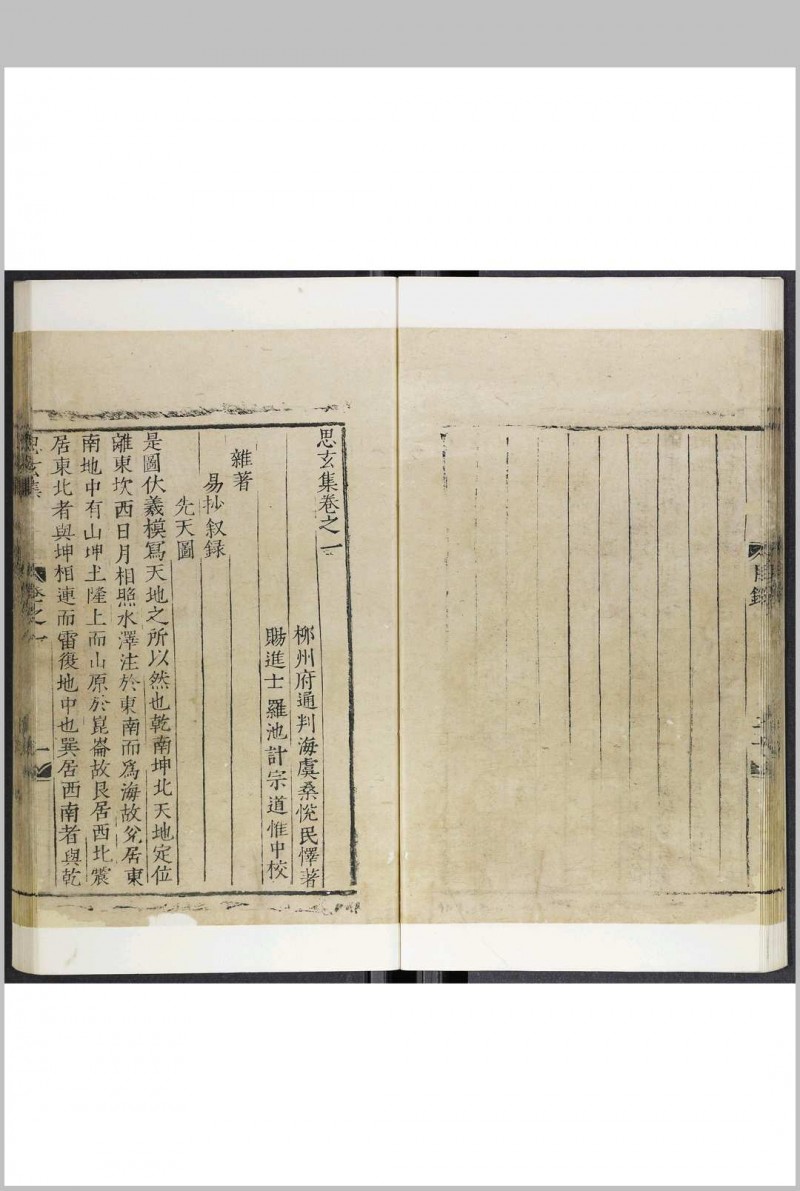 目錄
思玄集卷之一
柳州府通判海虞桑悅民懌著
賜進士羅池計宗道惟中校
雜著
易抄叙録
先天圖
是圖伏羲模寫天地之所以然也乾南坤北天地定位
離東坎西日月相照水澤注於東南而爲海故兌居東
南地中有山坤土隆上而山原於崑崙故艮居西北震
居東北者與坤相連而雷復地中也巽居西南者與乾
思玄集
卷之一
一